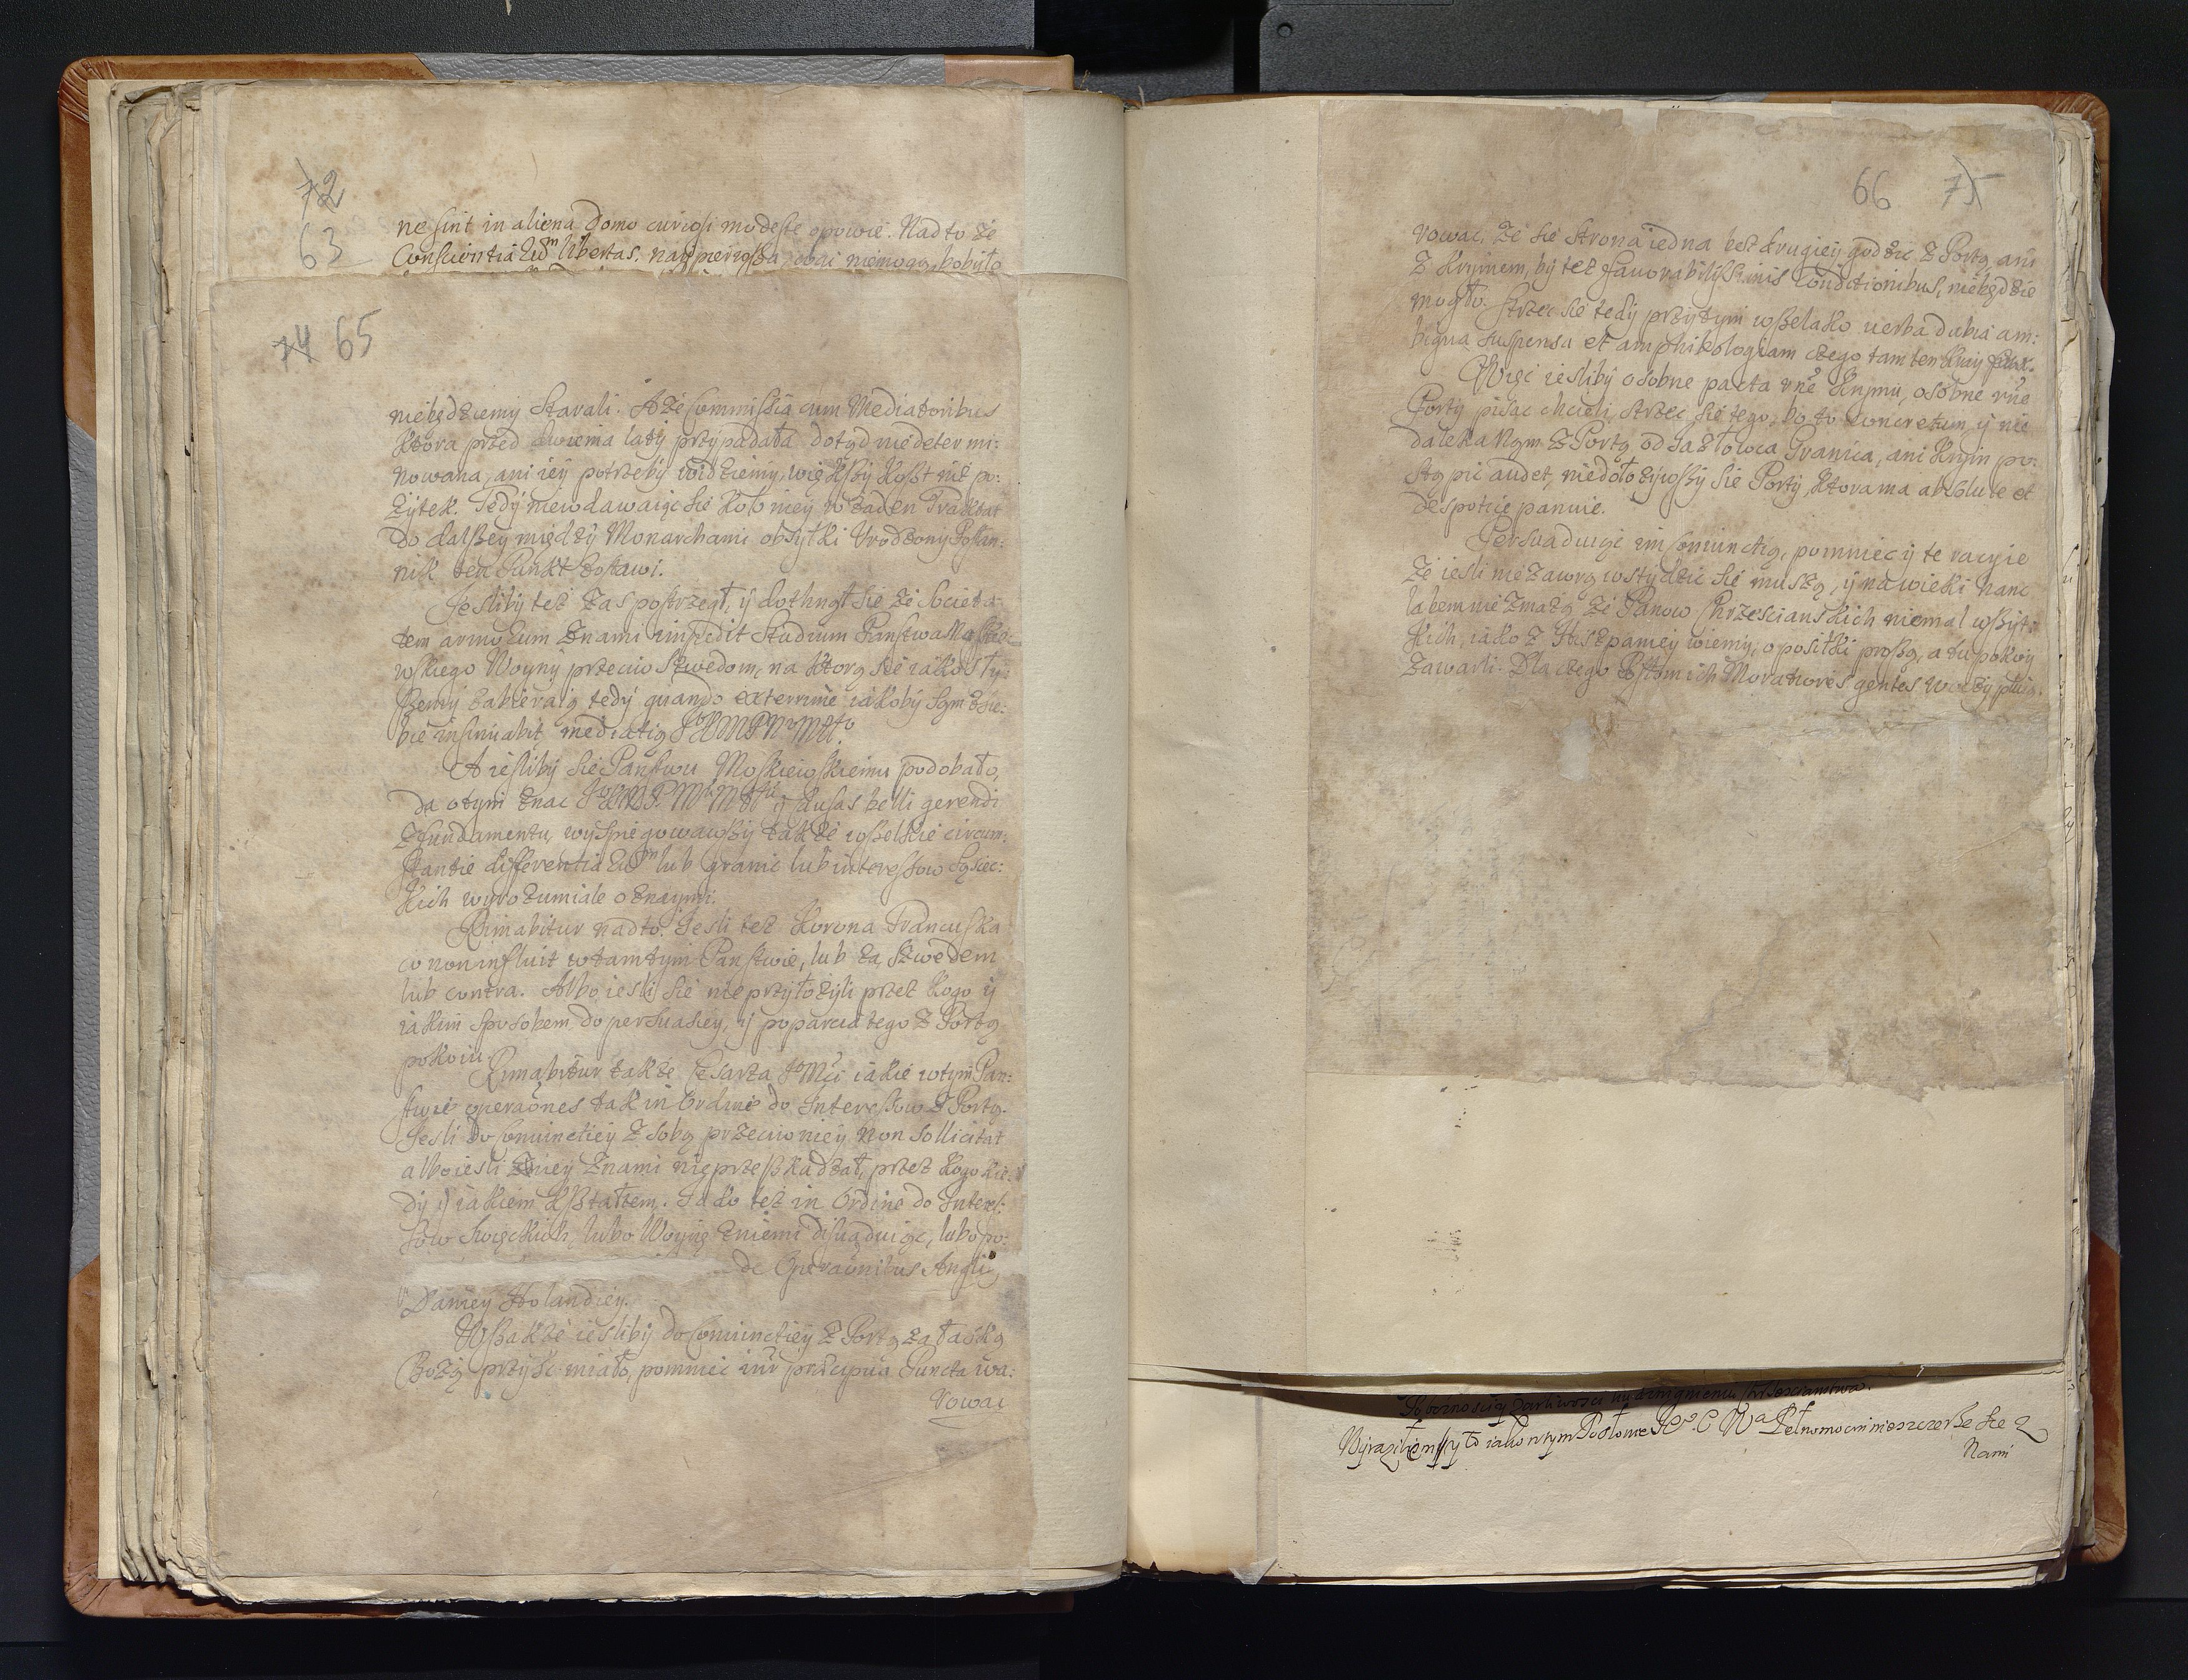 72
63
ne sint in aliena domo curiosi modeste opowie. Nadto że
Conscientia libertas. naypierwsza być niemogą, bo było
74 65
niebędziemy starali. A że Commissia cum Mediatoribus
Ktora przed dwiema laty przypadała dotąd niedetermi:
nowana, ani iey potrzeby widziemy, więkßy koßt niż po:
żytek. Tedy niewdawaiąc sie koło niey w żaden Traktat
do dalßey między Monarchami obsyłki Urodzony Posłan:
nik ten Punkt zostawi.
Jesliby też zas postrzegł, y dotknął sie że societa:
tem armorum z nami impedit studium Państwa
wskiego Woyny przeciw Szwedom, na Ktorą sie iakosły:
ßemy zabieraią tedy quando externum iakoby sam z sie:
bie insinuabit mediatią
A iesliby sie Państwu Moskiewskiemu podobało,
da o tym znac y Causas belli gerendi
z fundamentu, wyspiegowawßy także wßelkie circum:
stantie differentia lub Granic lub interessow Sąsiec:
kich wyrozumiale oznaymi.
Rimabitur nadto. Jesli też Korona Francuska
co non influit w tamtym Panstwie, lub za Szwedem
lub contra. Albo iesli sie nieprzyłożyli przez kogo y
iakim sposobem do persuasiey, y poparcia tego z Portą
pokoiu.
Rimabitur także Cesarza JoMci iakie w tym Pan:
stwie operaones tak in Ordine do Interessow z Portą.
Jesli do Coniunctiey z sobą przeciw niey non sollicitat
albo iesli z niey z nami nieprzeßkadzał, przez kogo kie:
dy y iakiem kßtałtem. Jako też in Ordine do Interes:
sow Swieckich, lubo Woynę z niemi disuaduiąc, lubo po:
de Operaonibus Anglij
Daniey Holandiey.
Wßakże iesliby do Coniunctiey z Portą za łaską
Bożą przyść miało, pomniec in praecipua Puncta wa:
rowac
66 75
rowac, że sie strona iedna bez drugiey godzic z Portą ani
z Krymem, by też favorabilissimis Conditionibus, niebędzie
mogło. Strzec sie tedy przytym wßelako verba dubia am:
bigua suspensa et amphibologiam czego tamten Kray
Więc iesliby osobne pacta Krymu, osobne
Porty pisac chcieli, strzec sie tego, bo to concretum, y nie
daleka Nam z Portą od Jazłowca Granica, ani Krym po:
stąpic audet, niedołożywßy sie Porty, Ktora ma absolute et
despoticé panuie.
Persuaduiąc im Coniunctią, pomniec y te racyie
że iesli nie zawrą wstydzic sie muszą, y na wieki hanc
labem nie zmażą że Panow Chrzescianskich niemal wßyt:
kich, iako z Hiszpaniey wiemy, o posiłki proßą, a tu pokoy
zawarli. Dla czego Posłom ich Moratiores gentes
Wyraziwßy to iako w tym Posłowie Pełnomocni nieszczerße sie z
Nami